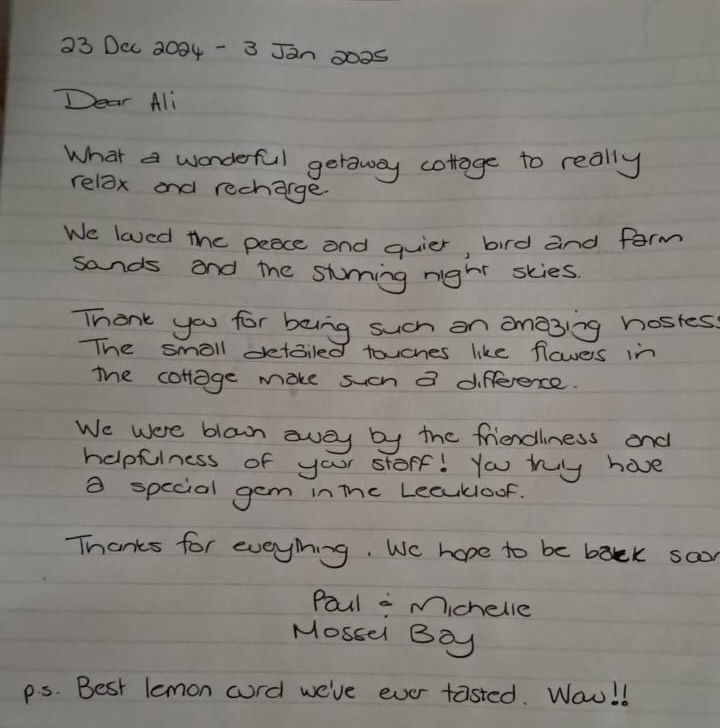 23 Dec 2024 - 3 Jan 2025
Dear Ali
What a wonderful getaway cottage to really
relax and recharge.
We loved the peace and quiet, bird and farm
sands and the stunning night skies.
Thank you for being such an amazing hostess
The small detailed touches like flowers in
the cottage make such a difference.
We were blown away by the friendliness and
helpfulness of your staff! You truly have
a special gem in the Leeukloof.
Thanks for everything. We hope to be back soon
Paul & Michelle
Mossel Bay
p.s. Best lemon curd we've ever tasted. Wow!!